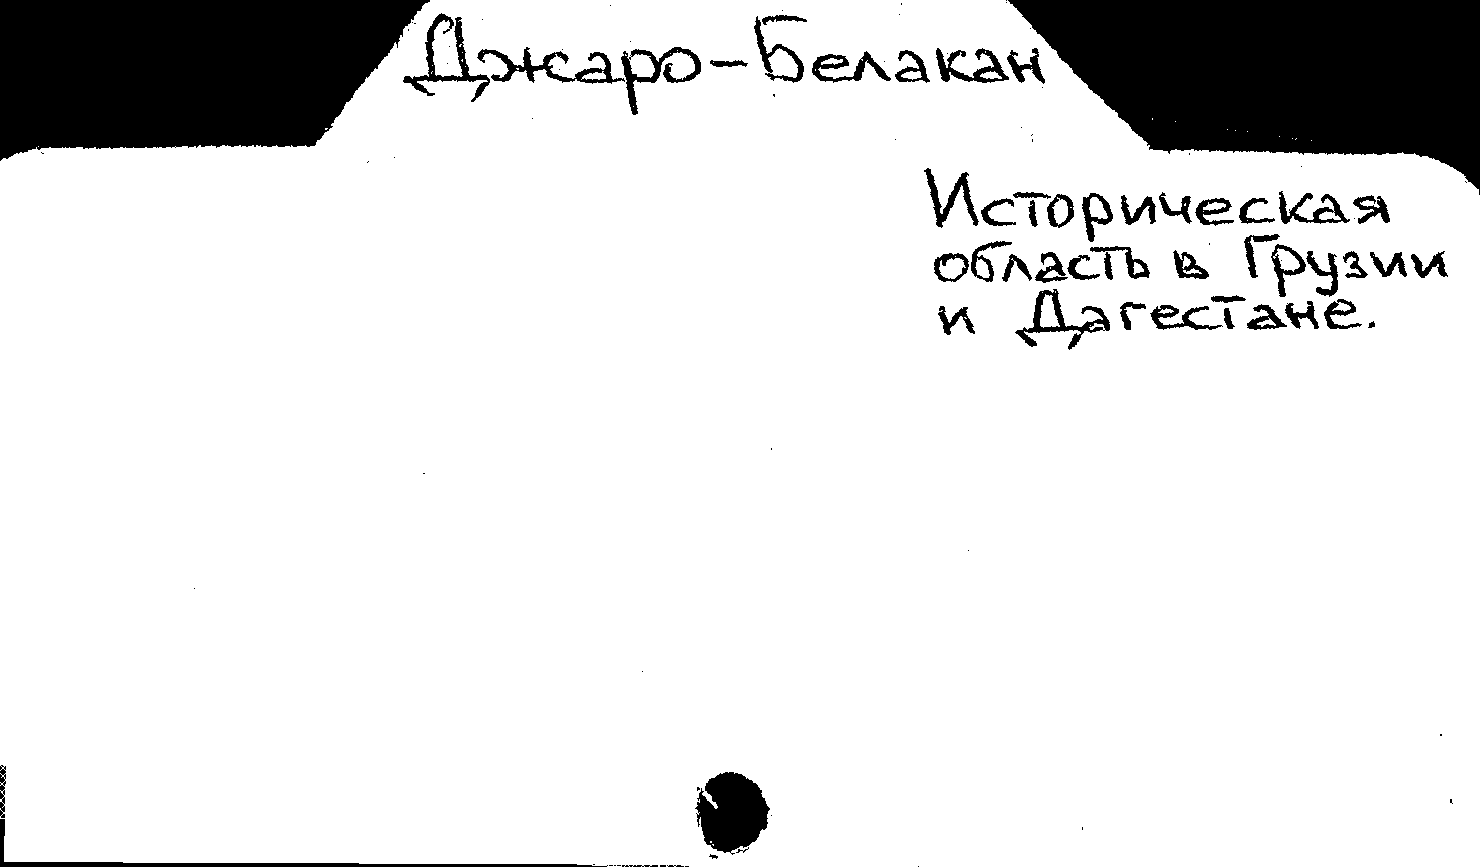 Джаро-Белакан
Историческая
область в Грузии
и Дагестане.